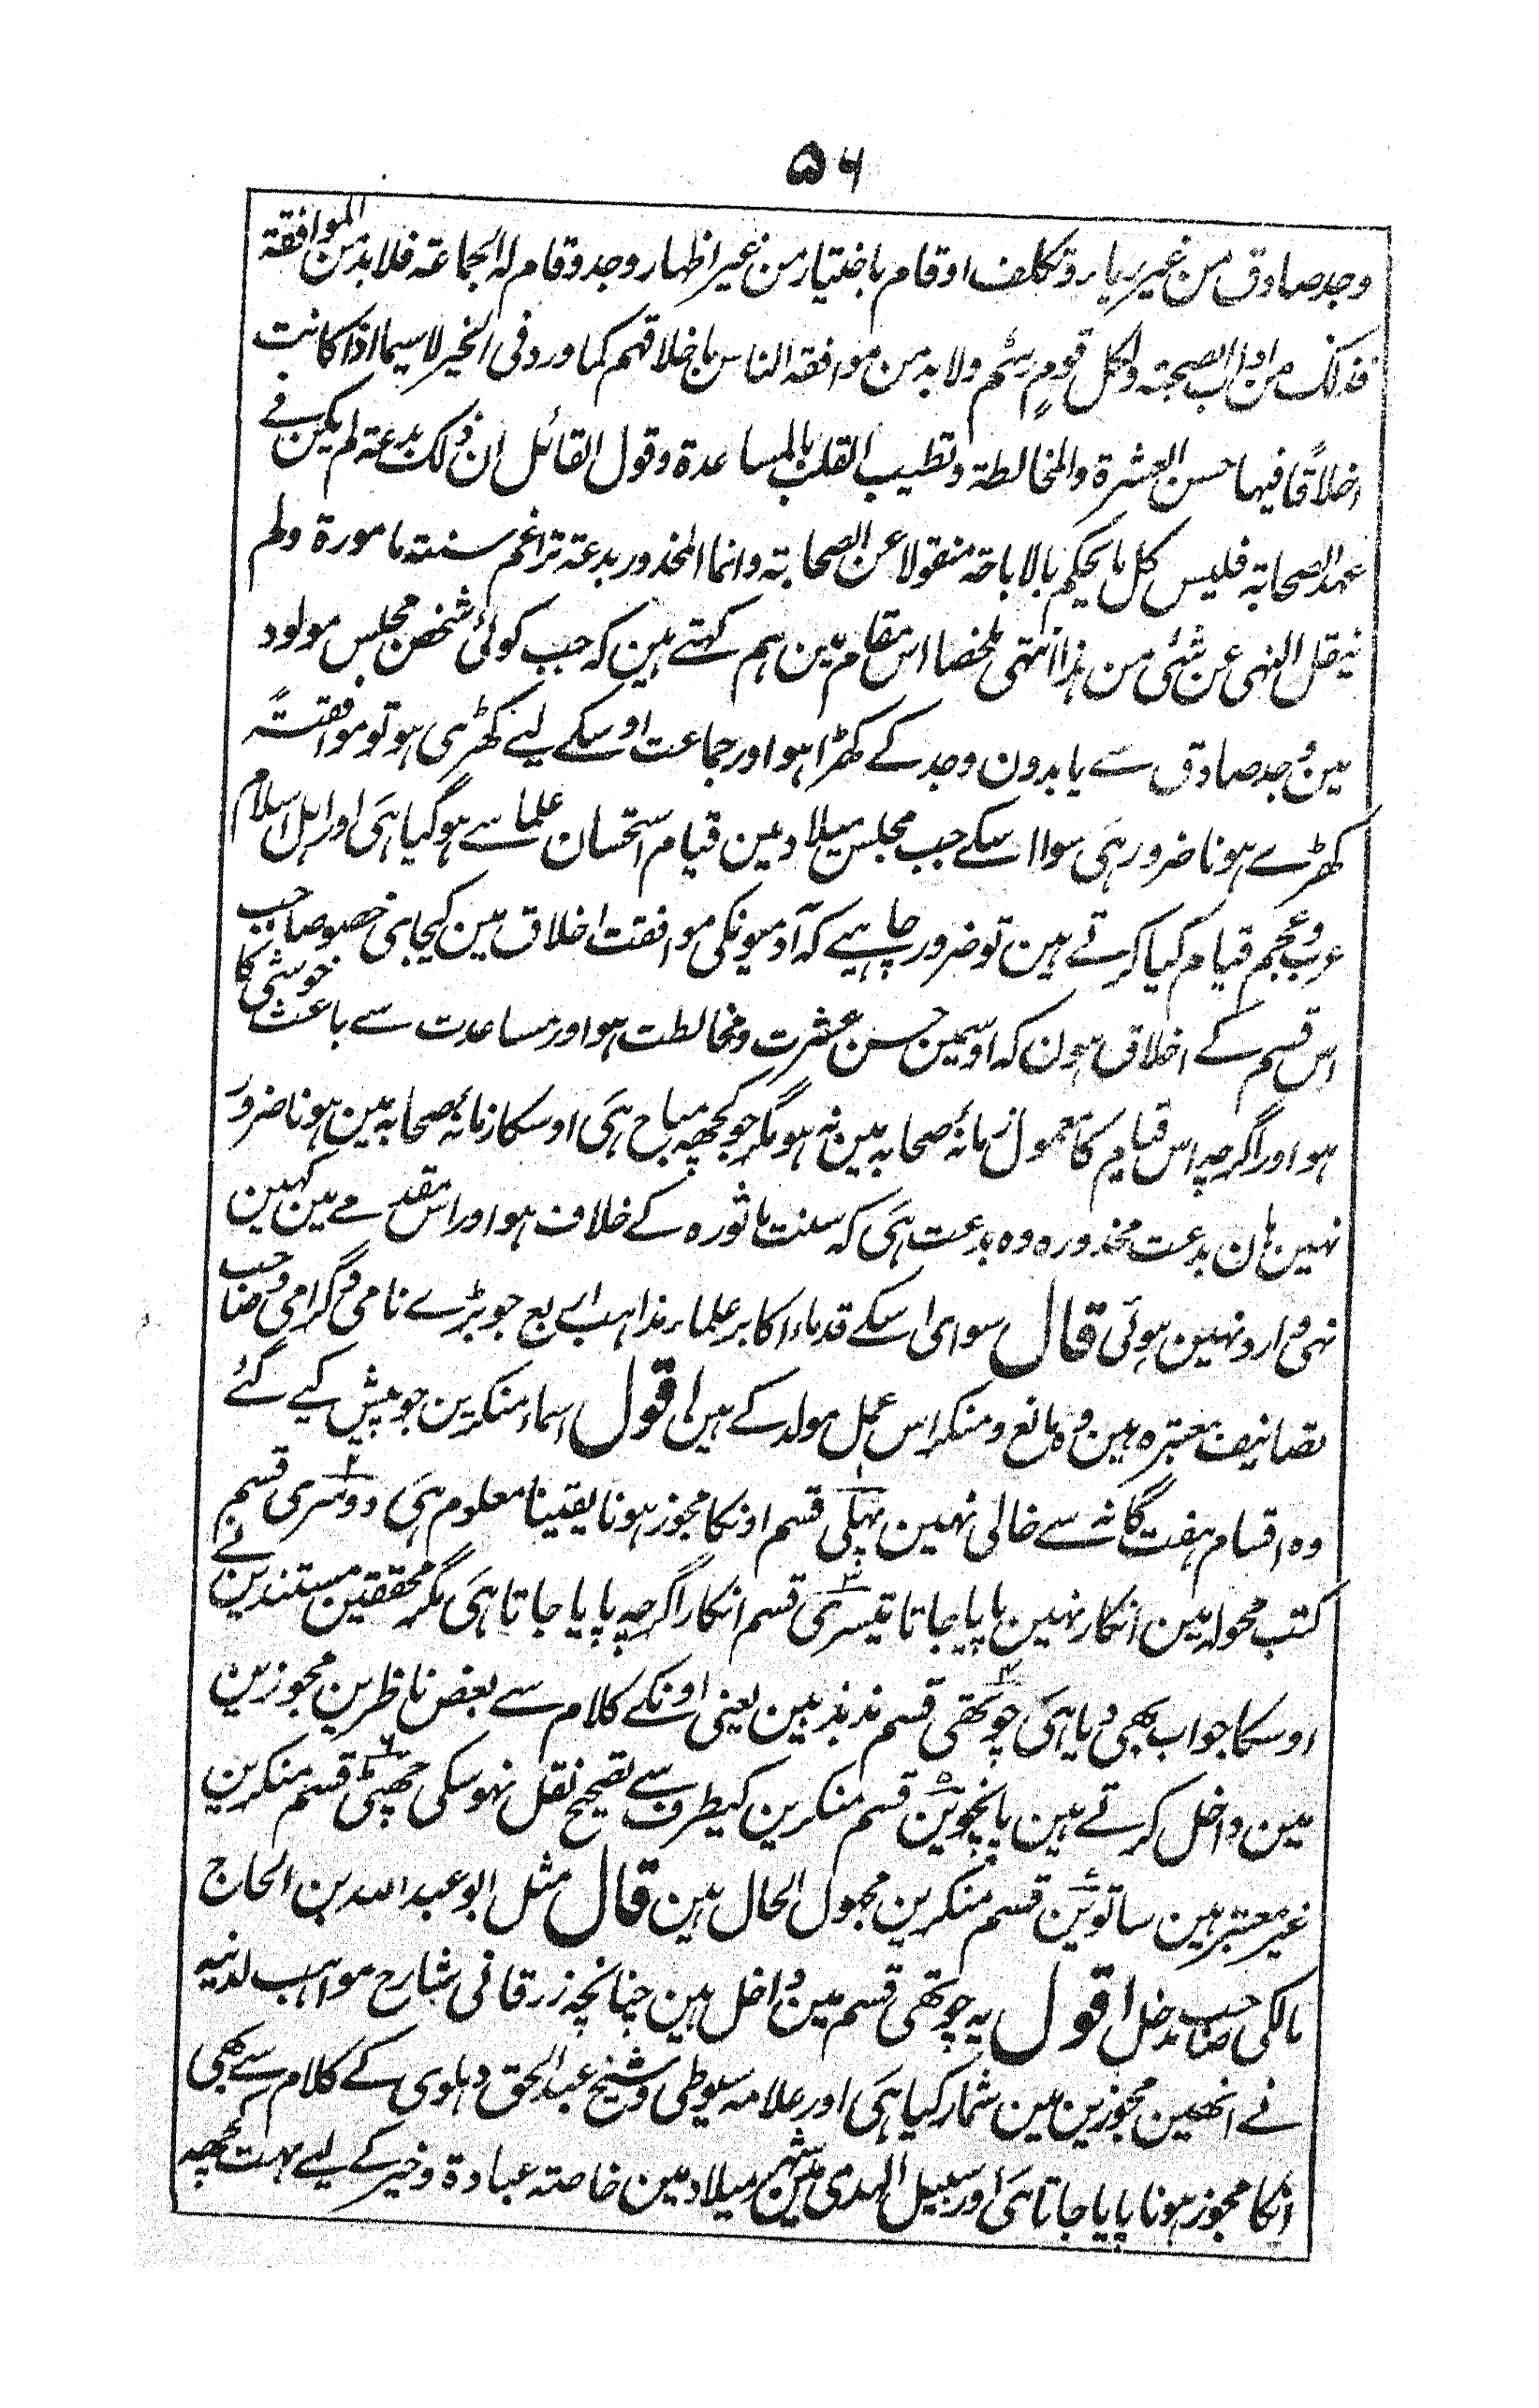 ۵۶
وجد صادق من غیر ریاء وتکلف او قام باختیار من غیر اظہار وجد وقام لہ الجماعۃ فلا بد من الموافقۃ
فذلک من اداب الصحبۃ ولکل قومٍ رسم ولا بد من موافقۃ الناس باخلاقہم کما ورد فی الخیر لا سیما اذا کانت
اخلاقًا فیہا حسن العشرۃ والمخالطۃ وتطییب القلب بالمساعدۃ وقول القائل ان ذلک بدعۃ لم یکن فے
عہد الصحابۃ فلیس کل ما یحکم بالاباحۃ منقولا عن الصحابۃ وانما المحذور بدعۃ تراغم سنتہ مامورۃ ولم
ینقل النہی عن شئی من ہذا انتہی ملخصا اس مقام مین ہم کہتے ہین کہ جب کوئی شخص مجلس مولود
مین وجد صادق سے یا بدون وجد کے کھڑا ہو اور جماعت اوسکے لیے کھڑی ہو تو موافقتًہ
کھڑے ہونا ضرور ہی سوا اسکے جب مجلس میلاد مین قیام استحسان علما سے ہوگیا ہی اور اہل اسلام
عرب وعجم قیام کیا کرتے ہین تو ضرور چاہیے کہ آدمیونکی موافقت اخلاق مین کیجای خصوصا جب
اس قسم کے اخلاق ہون کہ اوسمین حسن عشرت ومخالطت ہو اور مساعدت سے باعث خوشی کا
ہو اور اگرچہ اس قیام کا معمول زمانۂ صحابہ مین نہ ہو مگر جو کچھہ مباح ہی اوسکا زمانۂ صحابہ مین ہونا ضرور
نہین ہان بدعت محذورہ وہ بدعت ہی کہ سنت ماثورہ کے خلاف ہو اور اس مقدمے مین کہین
نہی وارد نہین ہوئی قال سوای اسکے قدماء اکابر علماء مذاہب اربع جو بڑے نامی وگرامی وصاحب
تصانیف معتبرہ ہین وہ مانع ومنکر اس عمل مولد کے ہین اقول اسماء منکرین جو پیش کیے گئے
وہ اقسام ہفت گانہ سے خالی نہین پہلی قسم اونکا مجوز ہونا یقینا معلوم ہی دوسری قسم
کتب محولہ مین انکار نہین پایا جاتا تیسری قسم انکار اگرچہ پایا جاتا ہی مگر محققین مستندین نے
اوسکا جواب بھی دیا ہی چوتھی قسم مذبذبین یعنی اونکے کلام سے بعض ناظرین مجوزین
مین داخل کرتے ہین پانچوین قسم منکرین کیطرف سے تصحیح نقل نہوسکی چھٹی قسم منکرین
غیر معتبر ہین ساتوین قسم منکرین مجہول الحال ہین قال مثل ابو عبد اللہ بن الحاج
مالکی صاحب مدخل اقول یہ چوتھی قسم مین داخل ہین چنانچہ زرقانی شارح مواہب لدنیہ
نے انھین مجوزین مین شمار کیا ہی اور علامہ سیوطی وشیخ عبد الحق دہلوی کے کلام سے بھی
انکا مجوز ہونا پایا جاتا ہی اور سبیل الہدی مین شہر میلاد مین خاصتہ عبادۃ وخیر کے لیے بہت کچھہ